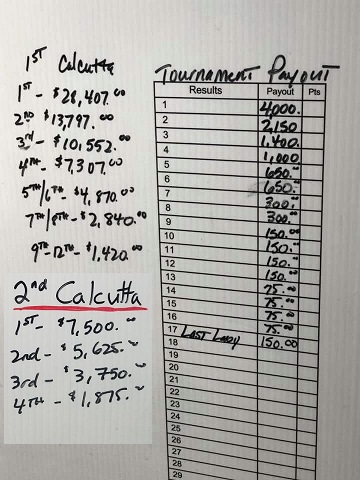 1ST Calcutta
1ST - $28,407.00
2ND $13,797.00
3rd - $10,552.00
4TH - $7,307.00
5TH/6TH - $4,870.00
7TH/8TH - $2,840.00
9TH-12TH - $1,420.00
2nd Calcutta
1ST - $7,500.00
2nd - $5,625.00
3rd - $3,750.00
4TH - $1,875.00
Tournament Payout
Results Payout Pts
1 4000.
2 2,150
3 1,400.
4 1,000
5 650.00
6 650.00
7 300.00
8 300.00
9 150.00
10 150.00
11 150.00
12 150.00
13 75.00
14 75.00
15 75.00
16 75.00
17 Last Lady 150.00
18
19
20
21
22
23
24
25
26
27
28
29